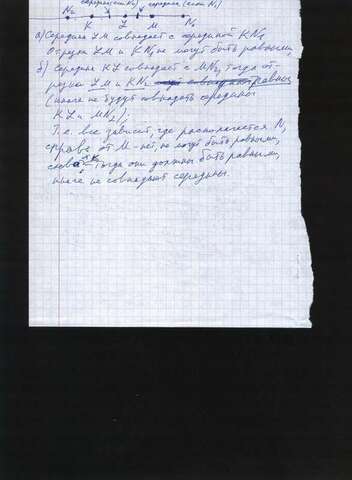 середина (если N₂) середина (если N₁)
N₂ K L M N₁
а) Середина LM совпадает с серединой KN₁
Отрезки LM и KN₁ не могут быть равными,
б) Середина KL совпадает с MN₂, тогда от-
резки LM и KN₂
(иначе не будут совпадать середины
KL и MN₂);
Т.е. все зависит, где располагается N,
справа от M - нет, не могут быть равными,
слева от K. Тогда они должны быть равными,
иначе не совпадают середины.